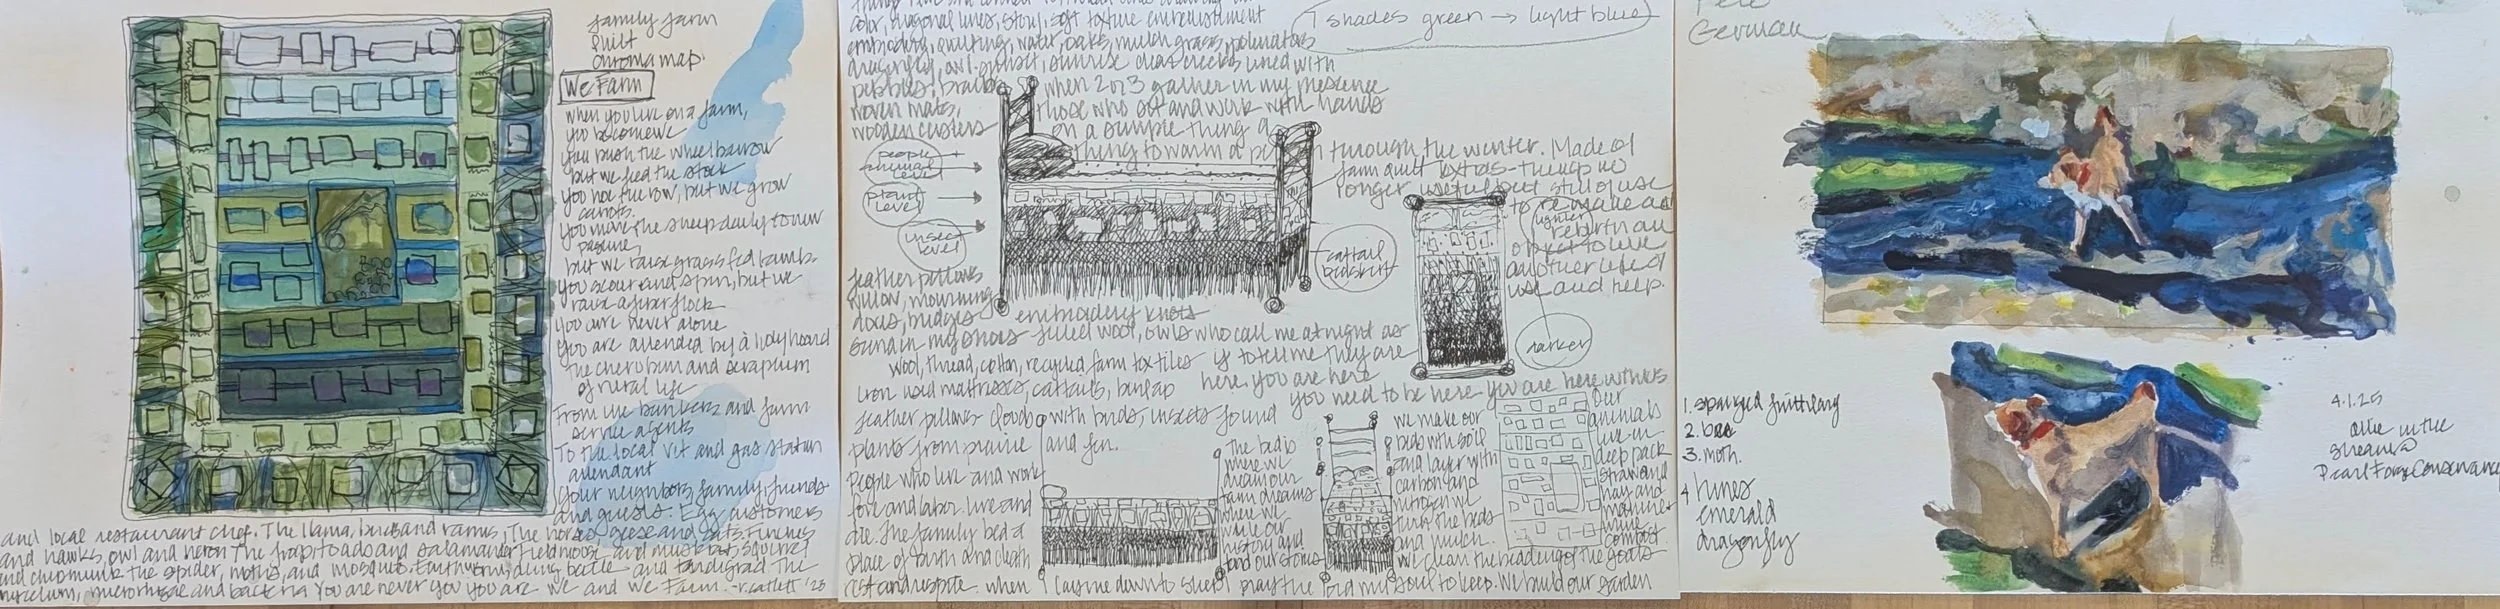 family farm
quilt
chroma map.
We Farm
when you live on a farm,
you become we
you push the wheelbarrow
but we feed the stock
you hoe the row, but we grow
carrots.
you move the sheep daily to new
pasture,
but we raise grass fed lambs
you scour and spin, but we
raise a fiber flock
you are never alone
you are attended by a holy hoard
the cherubim and seraphim
of rural life
From the bankers and farm
service agents
To the local vet and gas station
attendant
your neighbors, family, friends
and guests. Egg customers
and local restaurant chef. The llama, bucks and rams, The horses, geese and cats. Finches
and hawks, owl and heron The frogs toads and salamander Field moose and muskrat squirrel
and chipmunk the spider, moths, and mosquito. Earthworm, dung beetle and tardigrad The
mycelium, and bacteria you are never you you are we and we Farm. -r. catlett '23
color, diagonal lines, soft texture embellishment
embroidery, quilting, water, oaks, mulch grass, pollinators
dragonfly, owl, sunset, sunrise clear creeks lined with
pebbles,
woven mats,
wooden
7 shades green → light blue
when 2 or 3 gather in my presence
those who sit and work with hands
on a simple thing a
thing to warm a person through the winter. Made of
farm quilt textiles - things no
longer useful but still of use
to remake as
rebirth an
object to live
another life of
use and help.
people +
animal
level
plant
level
insect
level
cattail
bedskirt
lighter
darker
feather pillows
willow, mourning
doves, bridges embroidery knots
filled wool, owls who call me at night as
if to tell me they are
here. you are here
you need to be here you are here with us
wool, thread, cotton, recycled farm textiles
iron mattresses, cattails, burlap
feather pillows clouds with birds, insects found
plants from prairie and fen.
People who live and work
love and labor. live and
die. The family bed a
place of birth and death
rest and respite. when I lay me down to sleep I pray the lord my soul to keep. We build our garden
The bed is
where we
dream our
farm dreams
where we
make our
history and
and our stories
we make our
beds with soil
and layer with
carbon and
nitrogen we
turn the beds
and mulch.
we clean the bedding of the goats
Our
animals
live in
deep pack
straw and
hay and
manure +
urine
compost.
German
1. spangled fritillary
2. bee
3. moth.
4 hines
emerald
dragonfly
4.1.25
Ollie in the
stream @
Pearl Fargo Conservancy